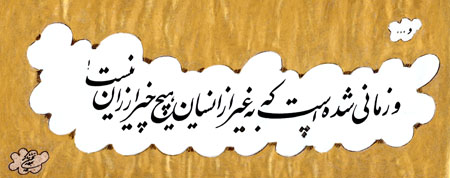 و...
و زمانی شده است که به غیر از انسان هیچ چیز ارزان نیست!